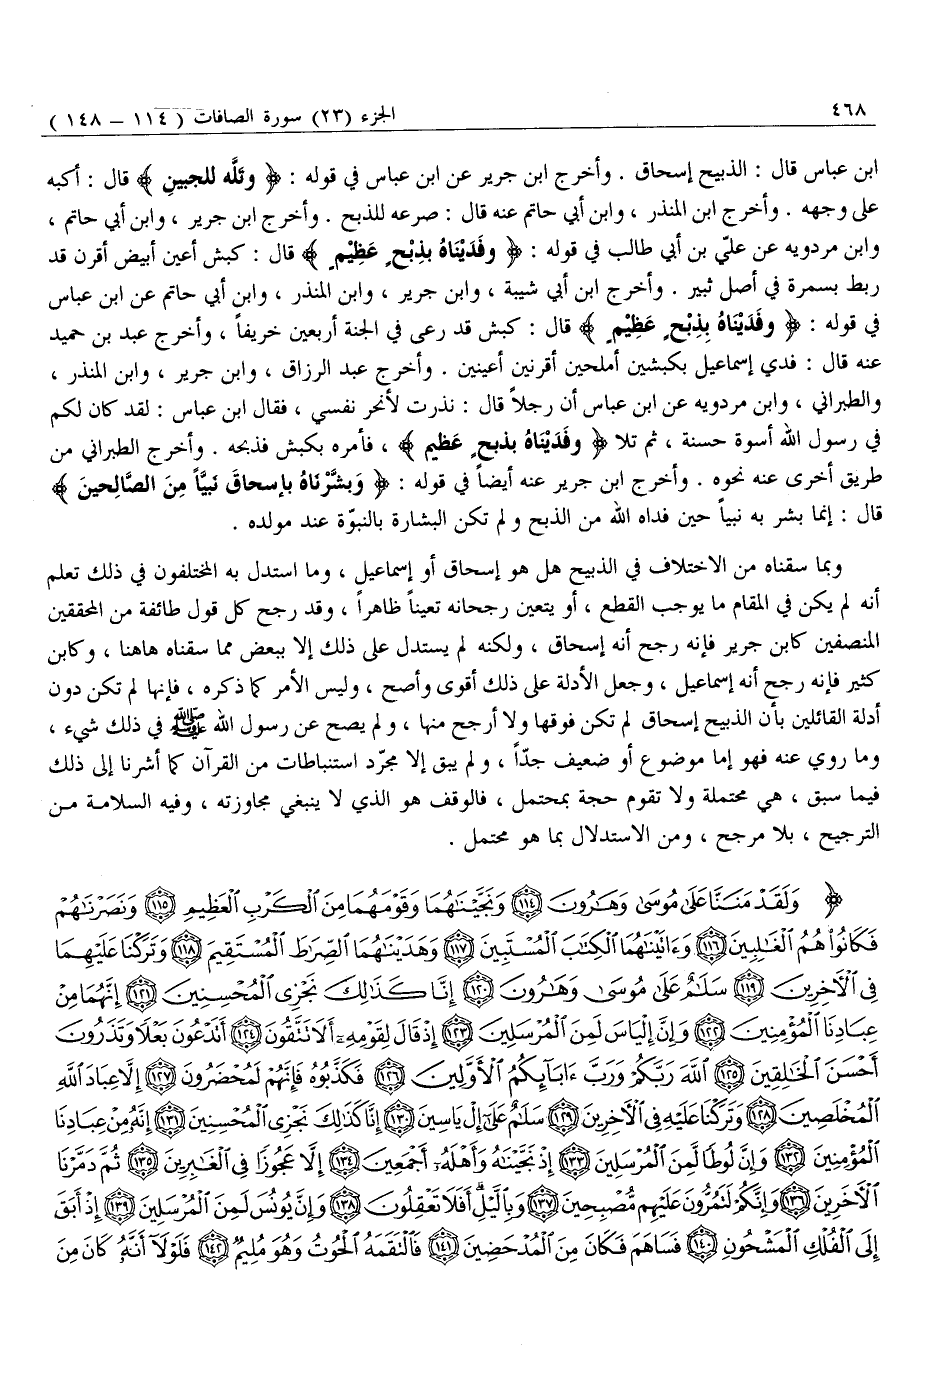 ٤٦٨
الجزء (٢٣) سورة الصافات ( ١١٤ – ١٤٨ )
ابن عباس قال : الذبيح إسحاق . وأخرج ابن جرير عن ابن عباس في قوله : ﴿ وتَلَّه للجبينِ ﴾ قال : أكبه
على وجهه . وأخرج ابن المنذر ، وابن أبي حاتم عنه قال : صرعه للذبح . وأخرج ابن جرير ، وابن أبي حاتم ،
وابن مردويه عن عليّ بن أبي طالب في قوله : ﴿ وفَديْنَاهُ بذِبْحٍ عَظِيْمٍ ﴾ قال : كبش أعين أبيض أقرن قد
ربط بسمرة في أصل ثبير . وأخرج ابن أبي شيبة ، وابن جرير ، وابن المنذر ، وابن أبي حاتم عن ابن عباس
في قوله : ﴿ وفَديْنَاهُ بِذِبْحٍ عَظِيْمٍ ﴾ قال : كبش قد رعى في الجنة أربعين خريفاً ، وأخرج عبد بن حميد
عنه قال : فدي إسماعيل بكبشين أملحين أقرنين أعينين . وأخرج عبد الرزاق ، وابن جرير ، وابن المنذر ،
والطبراني ، وابن مردويه عن ابن عباس أن رجلاً قال : نذرت لأنحر نفسي ، فقال ابن عباس : لقد كان لكم
في رسول الله أسوة حسنة ، ثم تلا ﴿ وفَديْنَاهُ بذبحٍ عَظيم ﴾ ، فأمره بكبش فذبحه . وأخرج الطبراني من
طريق أخرى عنه نحوه . وأخرج ابن جرير عنه أيضاً في قوله : ﴿ وَبشَّرْنَاهُ بإسحاقَ نَبيَّاً مِنَ الصَّالِحينَ ﴾
قال : إنما بشر به نبياً حين فداه الله من الذبح و لم تكن البشارة بالنبوّة عند مولده .
وبما سقناه من الاختلاف في الذبيح هل هو إسحاق أو إسماعيل ، وما استدل به المختلفون في ذلك تعلم
أنه لم يكن في المقام ما يوجب القطع ، أو يتعين رجحانه تعيناً ظاهراً ، وقد رجح كل قول طائفة من المحققين
المنصفين كابن جرير فإنه رجح أنه إسحاق ، ولكنه لم يستدل على ذلك إلا ببعض مما سقناه هاهنا ، وكابن
كثير فإنه رجح أنه إسماعيل ، وجعل الأدلة على ذلك أقوى وأصح ، وليس الأمر كما ذكره ، فإنها لم تكن دون
أدلة القائلين بأن الذبيح إسحاق لم تكن فوقها ولا أرجح منها ، و لم يصح عن رسول الله ﷺ في ذلك شيء ،
وما روي عنه فهو إما موضوع أو ضعيف جدّاً ، و لم يبق إلا مجرّد استنباطات من القرآن كما أشرنا إلى ذلك
فيما سبق ، هي محتملة ولا تقوم حجة بمحتمل ، فالوقف هو الذي لا ينبغي مجاوزته ، وفيه السلامة من
الترجيح ، بلا مرجح ، ومن الاستدلال بما هو محتمل .
﴿ وَلَقَدْ مَنَنَّا عَلَىٰ مُوسَىٰ وَهَٰرُونَ ﴿١١٤﴾ وَنَجَّيْنَٰهُمَا وَقَوْمَهُمَا مِنَ ٱلْكَرْبِ ٱلْعَظِيمِ ﴿١١٥﴾ وَنَصَرْنَٰهُمْ
فَكَانُوا۟ هُمُ ٱلْغَٰلِبِينَ ﴿١١٦﴾ وَءَاتَيْنَٰهُمَا ٱلْكِتَٰبَ ٱلْمُسْتَبِينَ ﴿١١٧﴾ وَهَدَيْنَٰهُمَا ٱلصِّرَٰطَ ٱلْمُسْتَقِيمَ ﴿١١٨﴾ وَتَرَكْنَا عَلَيْهِمَا
فِى ٱلْءَاخِرِينَ ﴿١١٩﴾ سَلَٰمٌ عَلَىٰ مُوسَىٰ وَهَٰرُونَ ﴿١٢٠﴾ إِنَّا كَذَٰلِكَ نَجْزِى ٱلْمُحْسِنِينَ ﴿١٢١﴾ إِنَّهُمَا مِنْ
عِبَادِنَا ٱلْمُؤْمِنِينَ ﴿١٢٢﴾ وَإِنَّ إِلْيَاسَ لَمِنَ ٱلْمُرْسَلِينَ ﴿١٢٣﴾ إِذْ قَالَ لِقَوْمِهِۦٓ أَلَا تَتَّقُونَ ﴿١٢٤﴾ أَتَدْعُونَ بَعْلًا وَتَذَرُونَ
أَحْسَنَ ٱلْخَٰلِقِينَ ﴿١٢٥﴾ ٱللَّهَ رَبَّكُمْ وَرَبَّ ءَابَآئِكُمُ ٱلْأَوَّلِينَ ﴿١٢٦﴾ فَكَذَّبُوهُ فَإِنَّهُمْ لَمُحْضَرُونَ ﴿١٢٧﴾ إِلَّا عِبَادَ ٱللَّهِ
ٱلْمُخْلَصِينَ ﴿١٢٨﴾ وَتَرَكْنَا عَلَيْهِ فِى ٱلْءَاخِرِينَ ﴿١٢٩﴾ سَلَٰمٌ عَلَىٰٓ إِلْ يَاسِينَ ﴿١٣٠﴾ إِنَّا كَذَٰلِكَ نَجْزِى ٱلْمُحْسِنِينَ ﴿١٣١﴾ إِنَّهُۥ مِنْ عِبَادِنَا
ٱلْمُؤْمِنِينَ ﴿١٣٢﴾ وَإِنَّ لُوطًا لَّمِنَ ٱلْمُرْسَلِينَ ﴿١٣٣﴾ إِذْ نَجَّيْنَٰهُ وَأَهْلَهُۥٓ أَجْمَعِينَ ﴿١٣٤﴾ إِلَّا عَجُوزًا فِى ٱلْغَٰبِرِينَ ﴿١٣٥﴾ ثُمَّ دَمَّرْنَا
ٱلْءَاخَرِينَ ﴿١٣٦﴾ وَإِنَّكُمْ لَتَمُرُّونَ عَلَيْهِم مُّصْبِحِينَ ﴿١٣٧﴾ وَبِٱلَّيْلِ ۗ أَفَلَا تَعْقِلُونَ ﴿١٣٨﴾ وَإِنَّ يُونُسَ لَمِنَ ٱلْمُرْسَلِينَ ﴿١٣٩﴾ إِذْ أَبَقَ
إِلَى ٱلْفُلْكِ ٱلْمَشْحُونِ ﴿١٤٠﴾ فَسَاهَمَ فَكَانَ مِنَ ٱلْمُدْحَضِينَ ﴿١٤١﴾ فَٱلْتَقَمَهُ ٱلْحُوتُ وَهُوَ مُلِيمٌ ﴿١٤٢﴾ فَلَوْلَآ أَنَّهُۥ كَانَ مِنَ